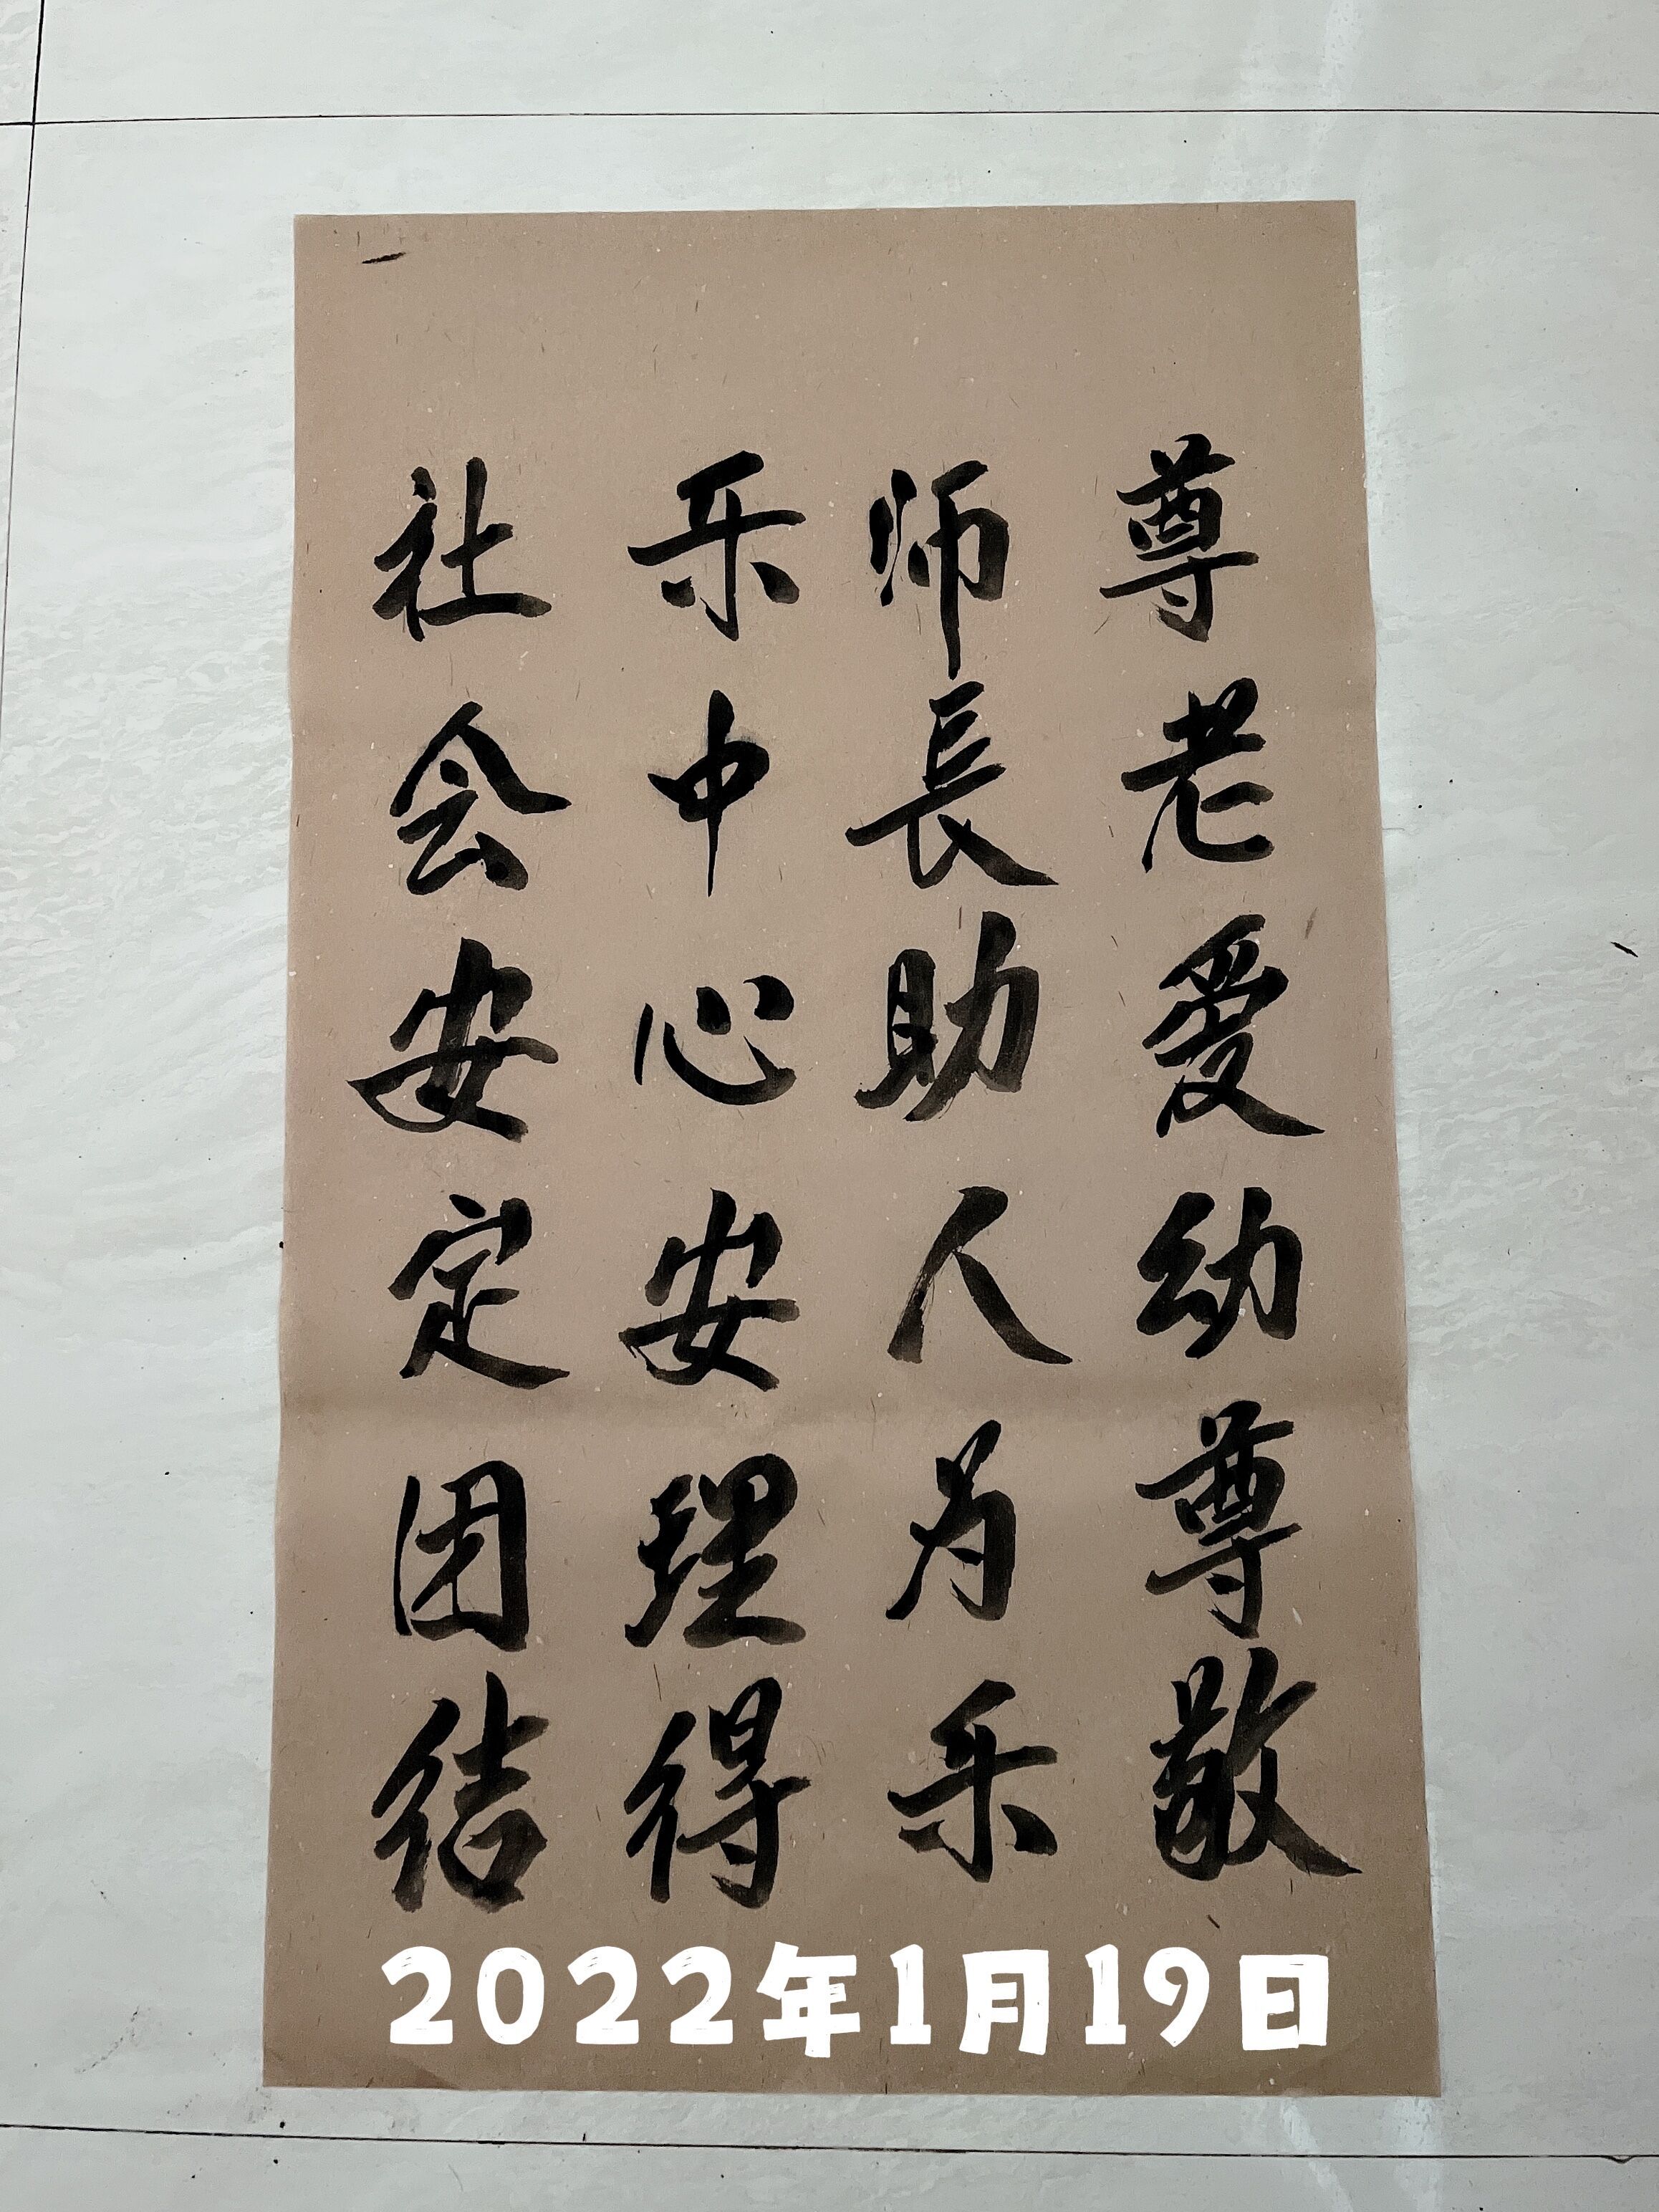 尊老爱幼尊敬
师長助人为乐
乐中心安理得
社会安定团结
2022年1月19日